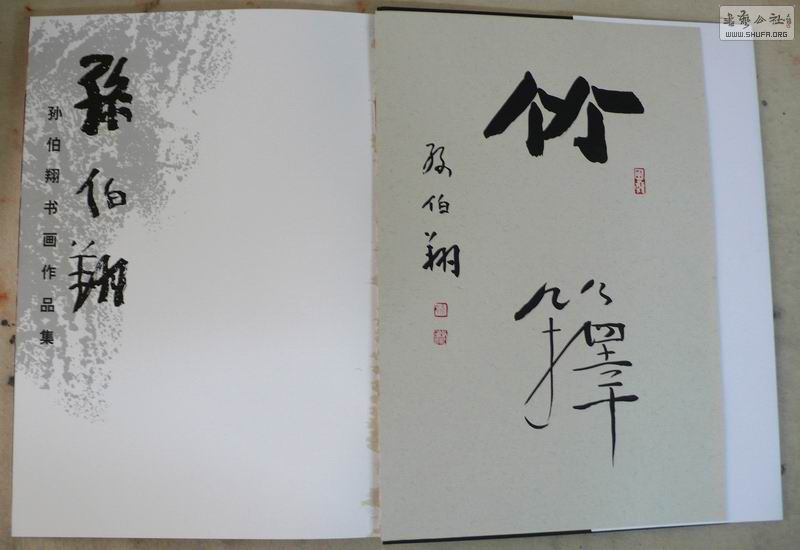 孫伯翔
孙伯翔书画作品集
竹
孫伯翔
書藝公社
WWW.SHUFA.ORG